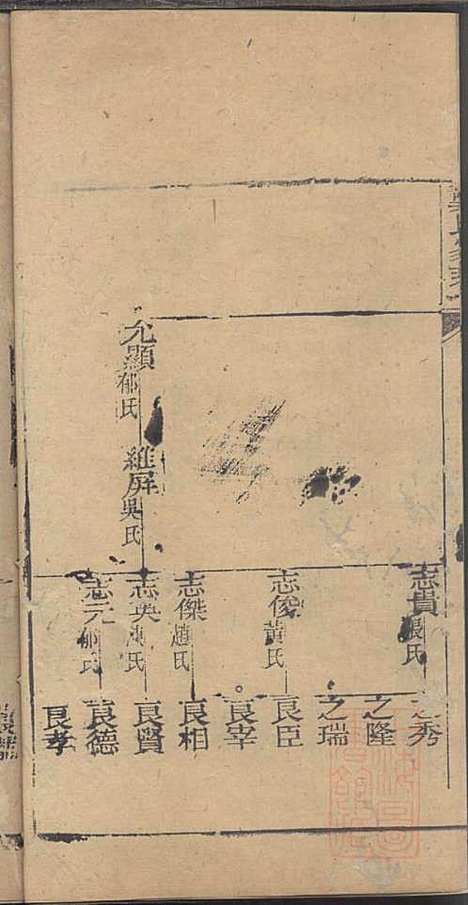 允顯郁氏
維屏吳氏
志貴張氏
志俊黃氏
志傑趙氏
志英陳氏
志元郁氏
之秀
之隆
之瑞
良臣
良宰
良相
良賢
良德
良孝